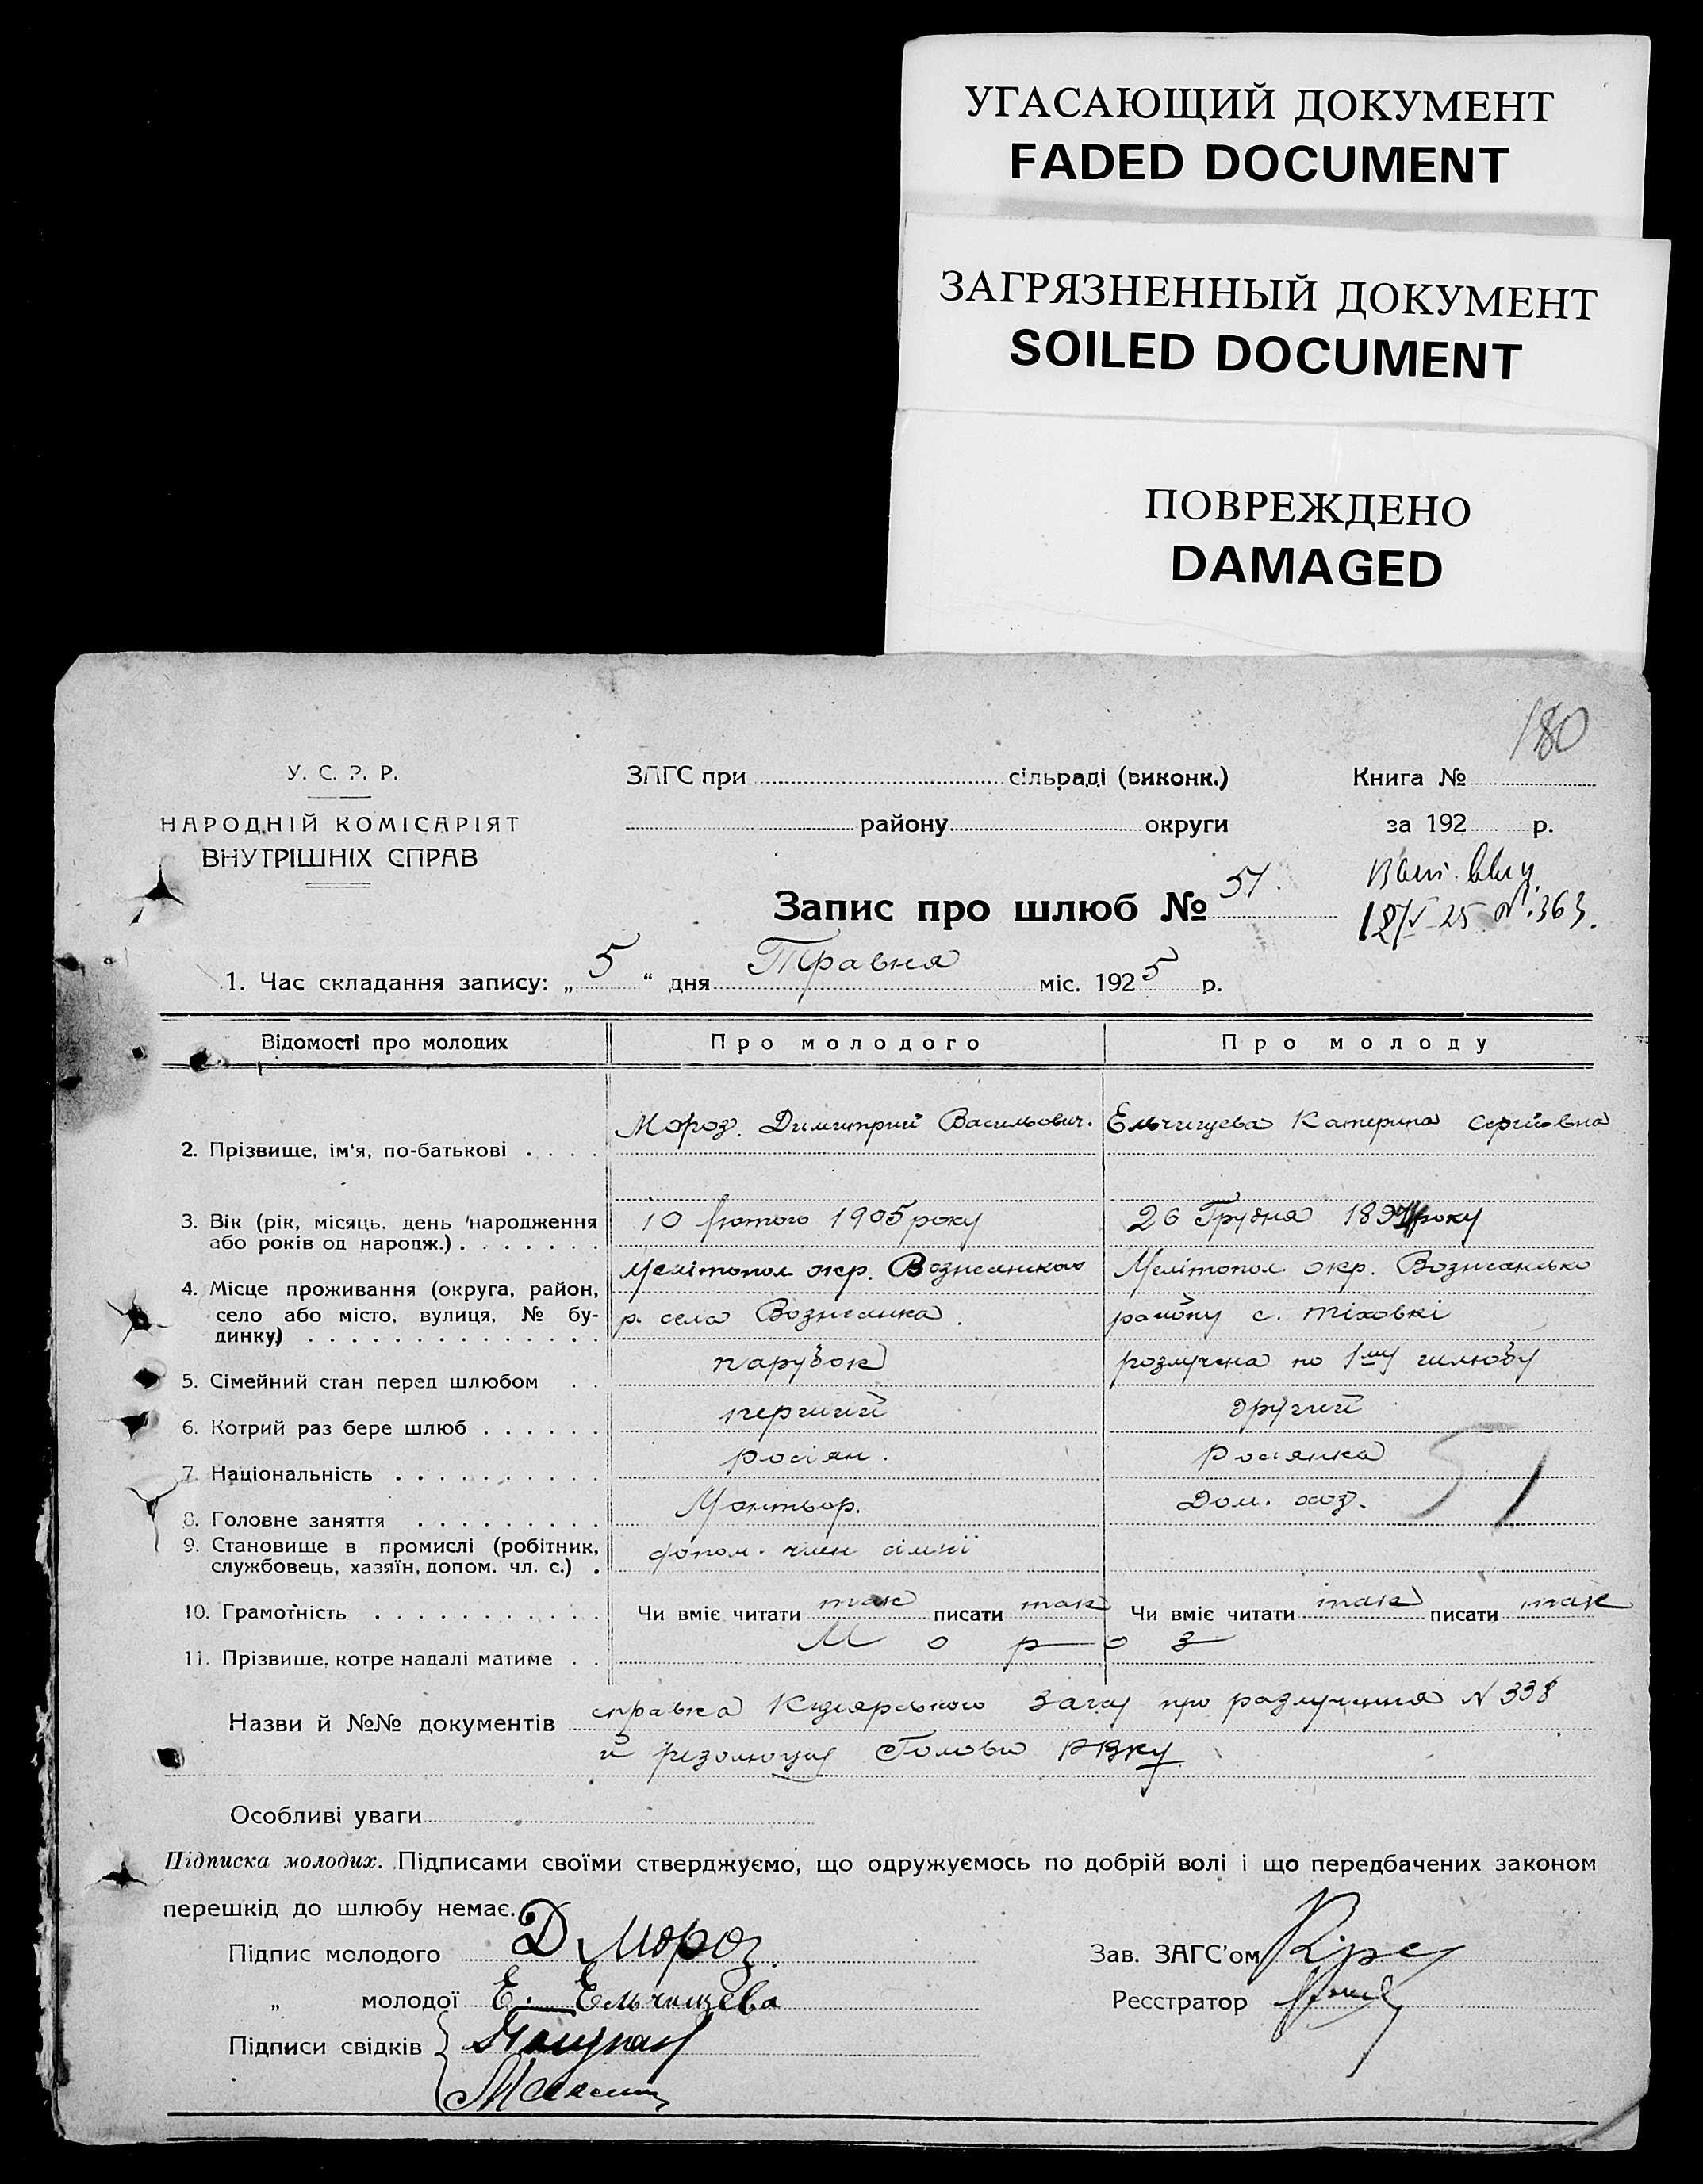 УГАСАЮЩИЙ ДОКУМЕНТ
FADED DOCUMENT
ЗАГРЯЗНЕННЫЙ ДОКУМЕНТ
SOILED DOCUMENT
ПОВРЕЖДЕНО
DAMAGED
180
У. С. Р. Р.
НАРОДНІЙ КОМІСАРІЯТ
ВНУТРІШНІХ СПРАВ
ЗАГС при сільраді (виконк.)
району округи
Книга №
за 192 р.
25 №.363.
Запис про шлюб № 51.
1. Час складання запису: „ 5 “ дня Травня міс. 1925 р.
Відомості про молодих Про молодого Про молоду
2. Прізвище, ім'я, по-батькові . . . . Мороз. Димитрий Васильович. Ельчищева Катерина Сергіевна
3. Вік (рік, місяць, день народження або років од народж.) . . . . . . . 10 лютого 1905 року 26 Грудня року
4. Місце проживання (округа, район, село або місто, вулиця, № будинку) . . . . . . . . . . . . .
Мелітопол окр. Вознесенкою
р. села Вознесенка.
Мелітопол. окр. Вознесансько
району с. Тіховкі
5. Сімейний стан перед шлюбом . . парубок розлучена по 1му шлюбу
6. Котрий раз бере шлюб . . . . . . перший другий
7. Національність . . . . . . . . . . росіян. росіянка
51
8. Головне заняття . . . . . . . . . Монтьор. Дом. хоз.
9. Становище в промислі (робітник, службовець, хазяїн, допом. чл. с.) . допом. член сімнї
10. Грамотність . . . . . . . . . . . Чи вміє читати так писати так Чи вміє читати так писати так
11. Прізвище, котре надалі матиме . . Мороз
Назви й №№ документів справка Кизіярського Загсу про разлучення N 338
й резолюция Голови РВКу
Особливі уваги
Підписка молодих. Підписами своїми стверджуємо, що одружуємось по добрій волі і що передбачених законом
перешкід до шлюбу немає.
Підпис молодого Д Мороз.
Зав. ЗАГС'ом
„ молодої Е. Ельчищева
Реєстратор
Підписи свідків